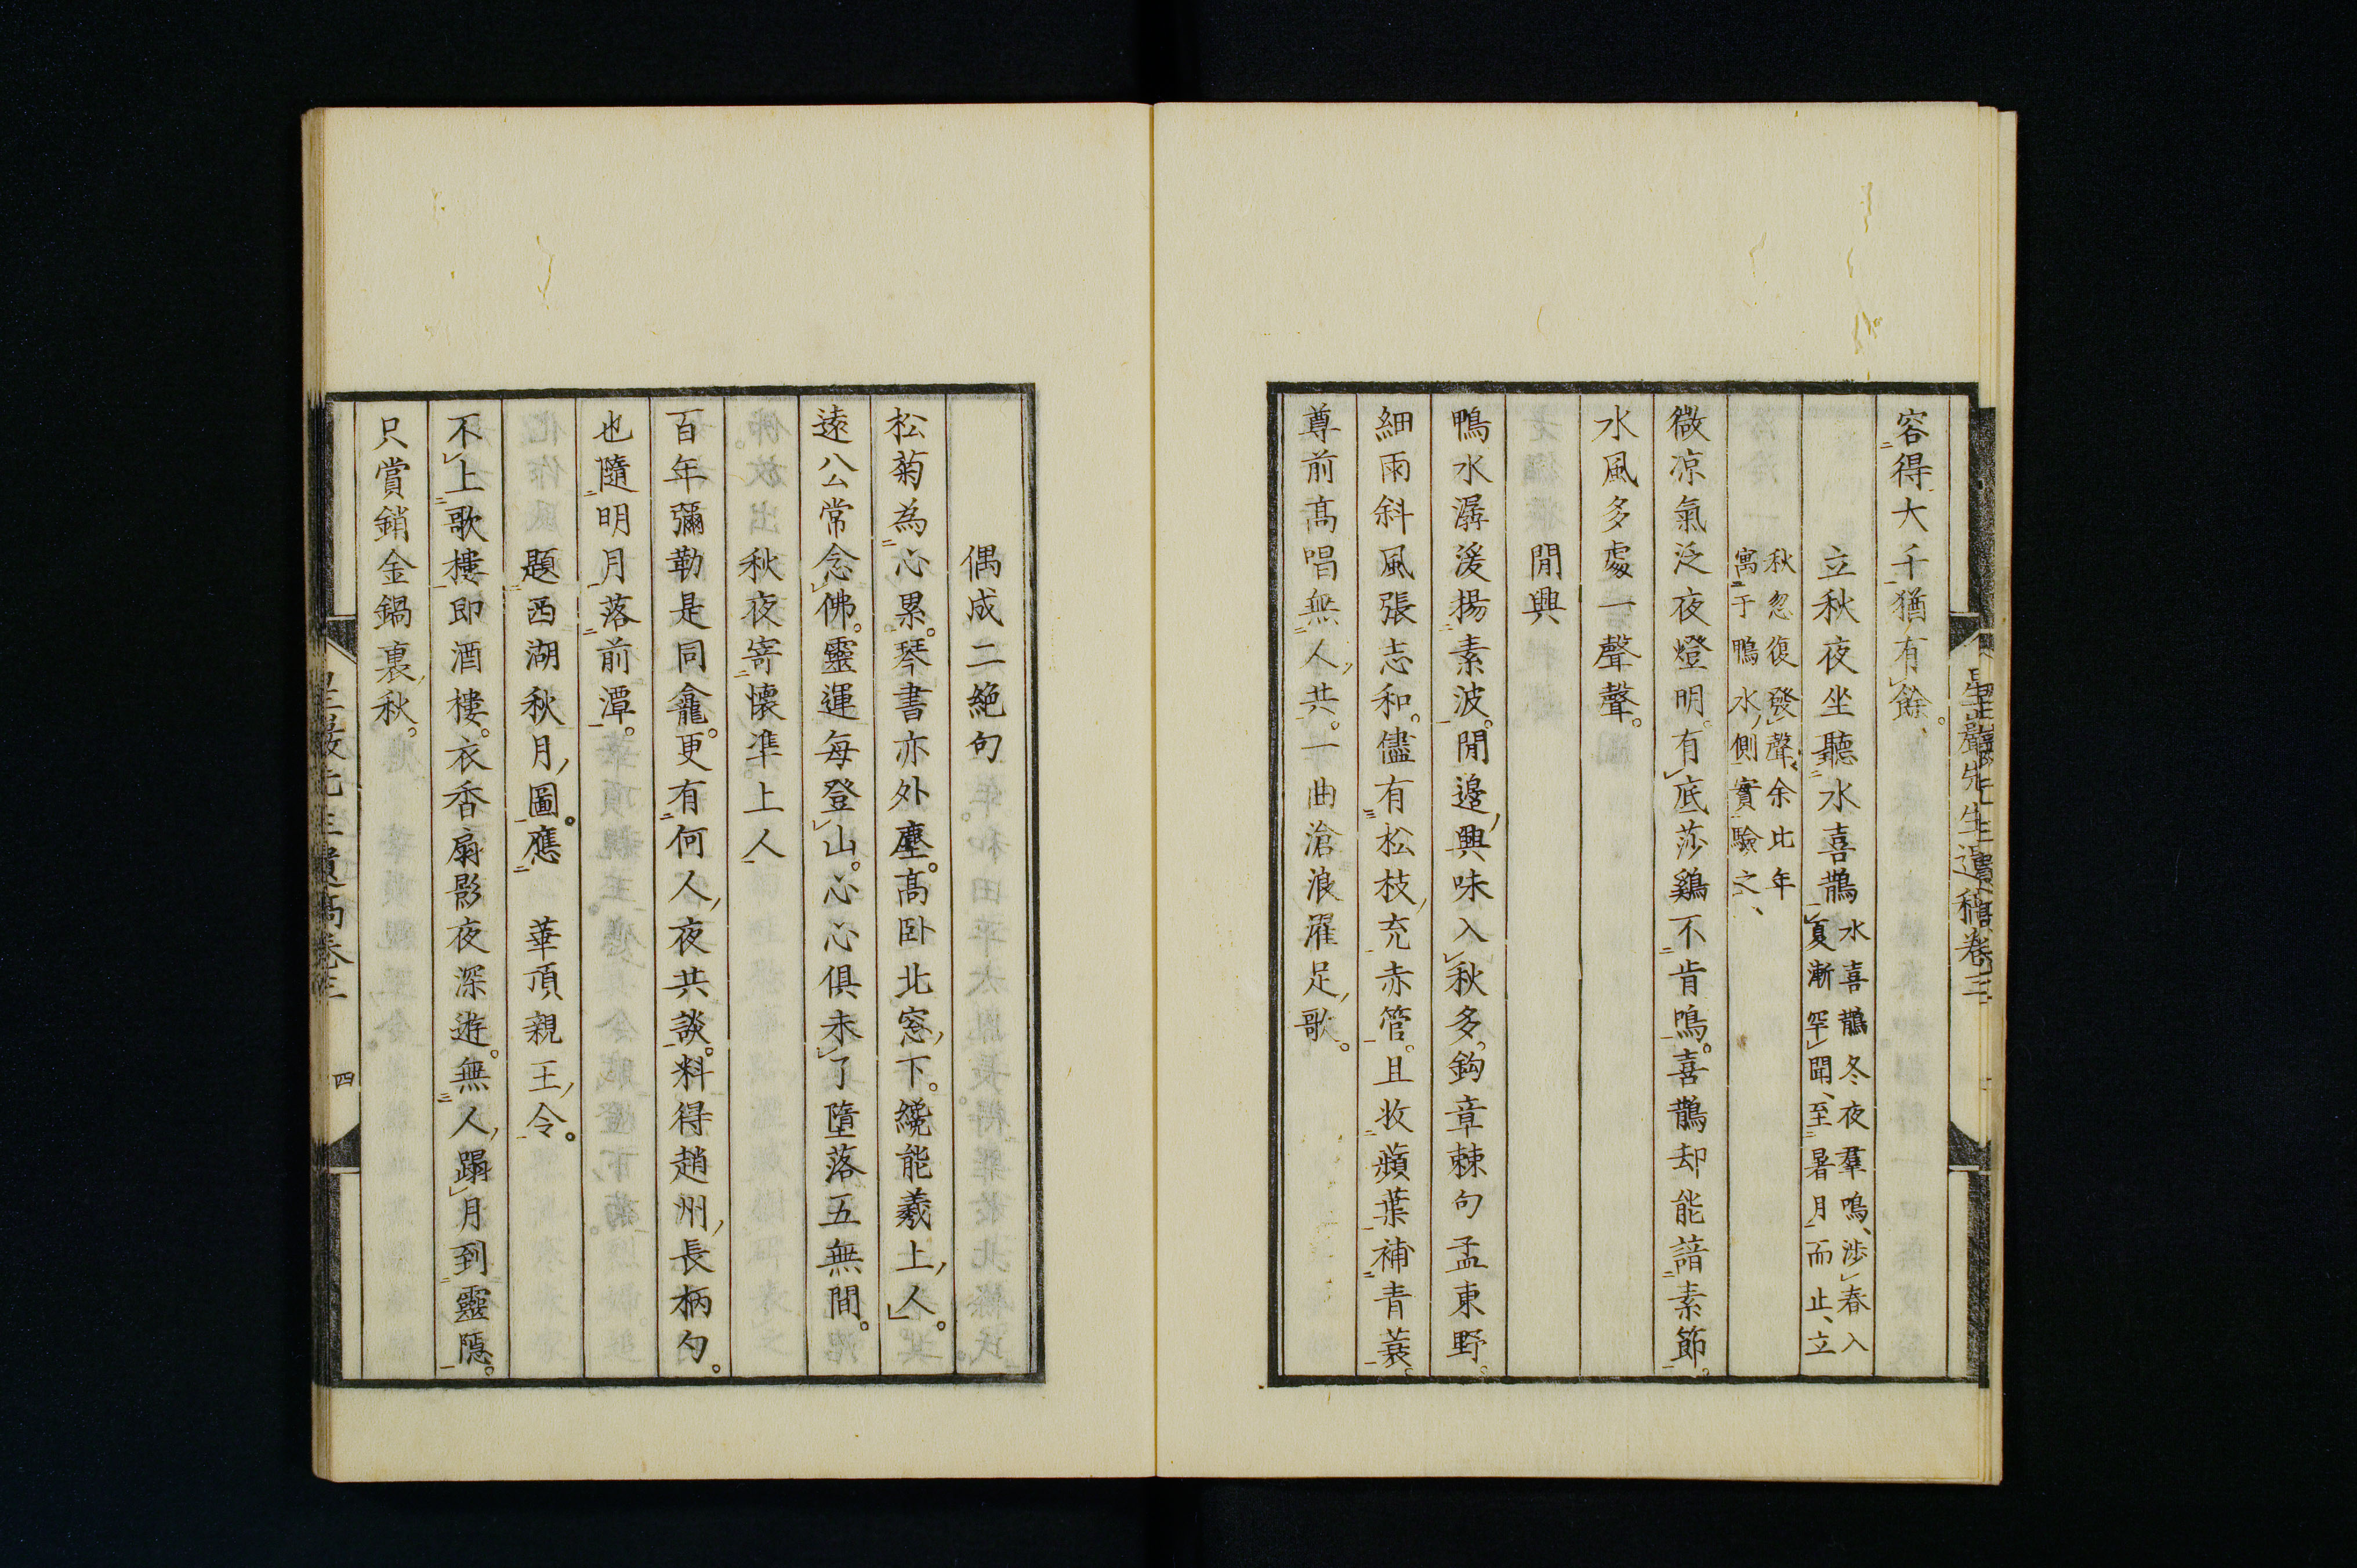 聖巖先生遺稿卷三
容得大千猶有餘。
立秋夜坐聽水喜鵲
水喜鵲冬夜羣鳴、渉春入
夏漸罕聞、至暑月而止、立
秋忽復發聲、余比年
寓于鴨水側實驗之、
微凉氣泛夜燈明。有底莎鷄不肯鳴。喜鵲却能諳素節。
水風多處一聲聲。
閒興
鴨水潺湲揚素波。閒邊興味入秋多。鈎章棘句孟東野。
細雨斜風張志和。儘有松枝充赤管。且收蘋葉補青蓑。
尊前高唱無人共。一曲滄浪濯足歌。
偶成二絶句
松菊為心累。琴書亦外塵。高卧北窓下。纔能羲上人。
遠公常念佛。靈運每登山。心心俱未了墮落五無間。
秋夜寄懷準上人
百年彌勒是同龕。更有何人夜共談。料得趙州長柄勺。
也隨明月落前潭。
題西湖秋月圖。應　華頂親王令。
不上歌樓即酒樓。衣香扇影夜深遊。無人蹋月到靈隱。
只賞銷金鍋裏秋。
四